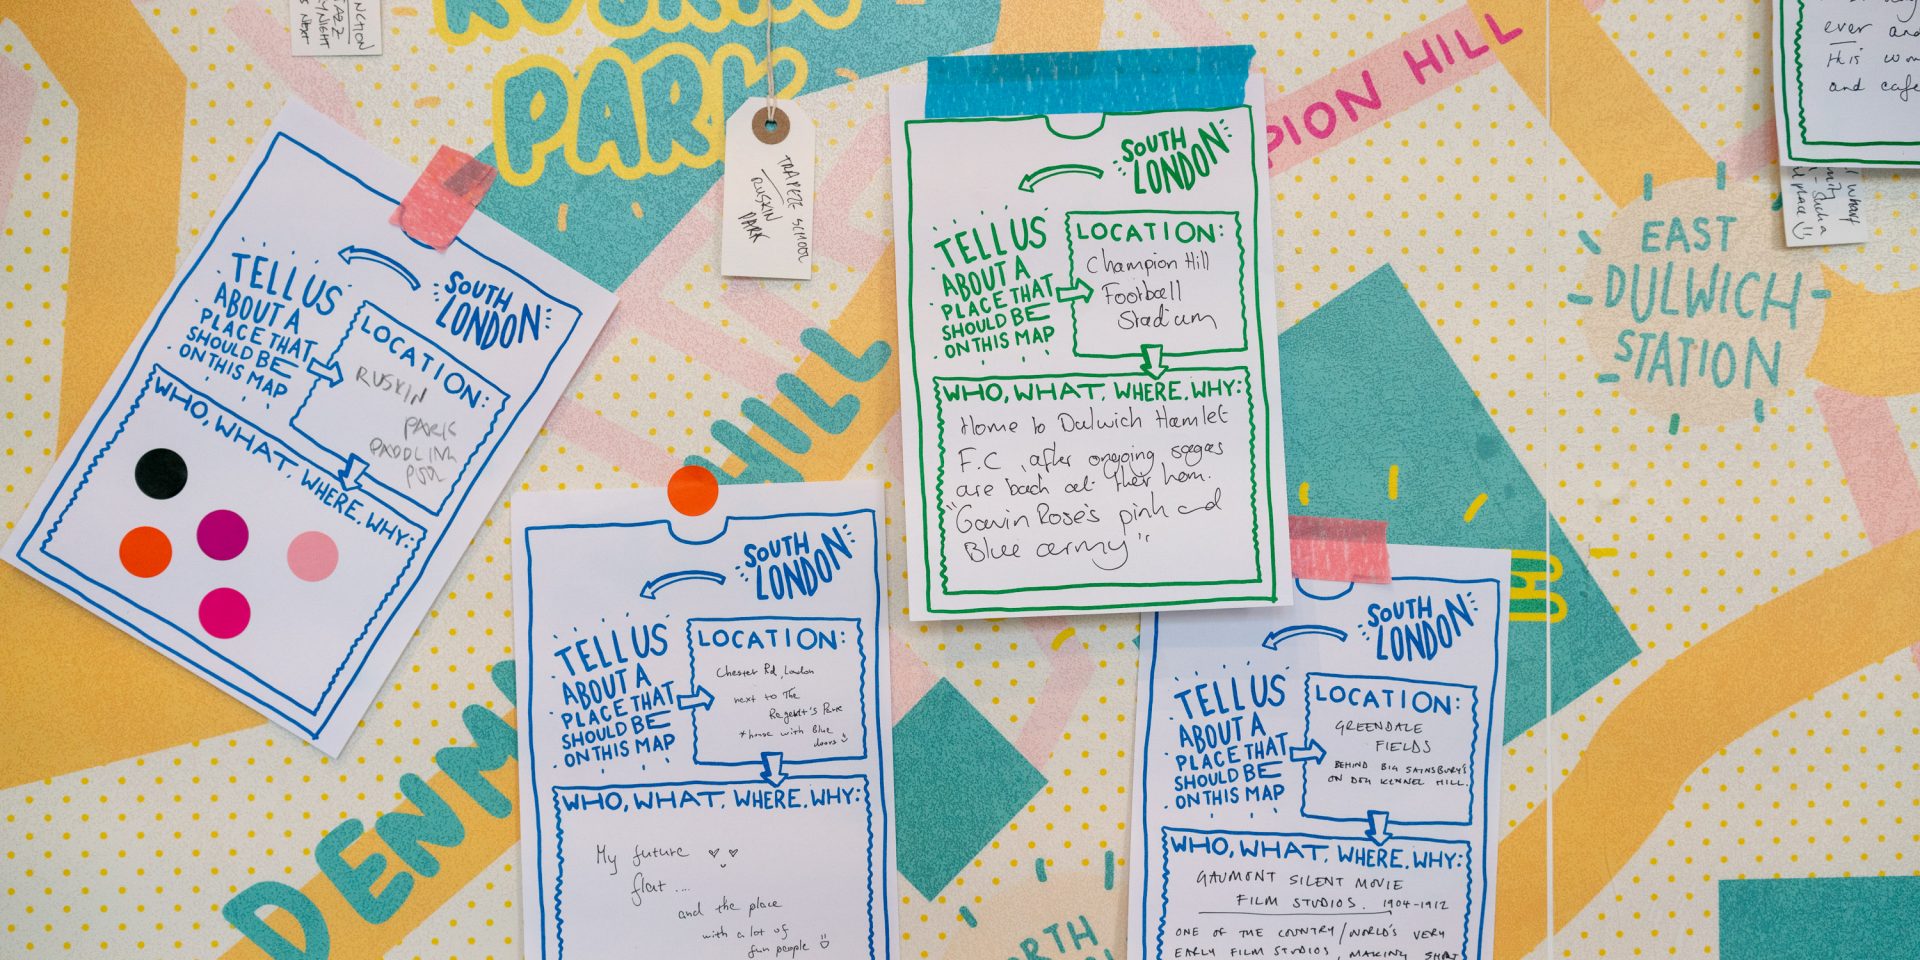 RUSKIN
PARK
NCTION
AZZ
YNIGHT
S NEXT
TRAPEZE SCHOOL
RUSKIN
PARK
PION HILL
EAST
DULWICH
STATION
HILL
DENM
ever and
this wo
and cafe
SOUTH
LONDON
TELL US
ABOUT A
PLACE THAT
SHOULD BE
ON THIS MAP
LOCATION:
RUSKIN
PARK
PADDLING
WHO, WHAT, WHERE, WHY:
SOUTH
LONDON
TELL US
ABOUT A
PLACE THAT
SHOULD BE
ON THIS MAP
LOCATION:
Chester Rd, London
next to The
Regebt's Park
*house with Blue
doors
WHO, WHAT, WHERE, WHY:
My future
flat ....
and the place
with a lot of
fun people
SOUTH
LONDON
TELL US
ABOUT A
PLACE THAT
SHOULD BE
ON THIS MAP
LOCATION:
Champion Hill
Football
Stadium
WHO, WHAT, WHERE, WHY:
Home to Dulwich Hamlet
F.C, after ongoing sagas
are back at their hom.
"Gavin Rose's pink and
Blue army"
SOUTH
LONDON
TELL US
ABOUT A
PLACE THAT
SHOULD BE
ON THIS MAP
LOCATION:
GREENDALE
FIELDS
BEHIND BIG SAINSBURY'S
ON DOG KENNEL HILL.
WHO, WHAT, WHERE, WHY:
GAUMONT SILENT MOVIE
FILM STUDIOS. 1904-1912
ONE OF THE COUNTRY/WORLD'S VERY
EARLY FILM STUDIOS, MAKING SHORT